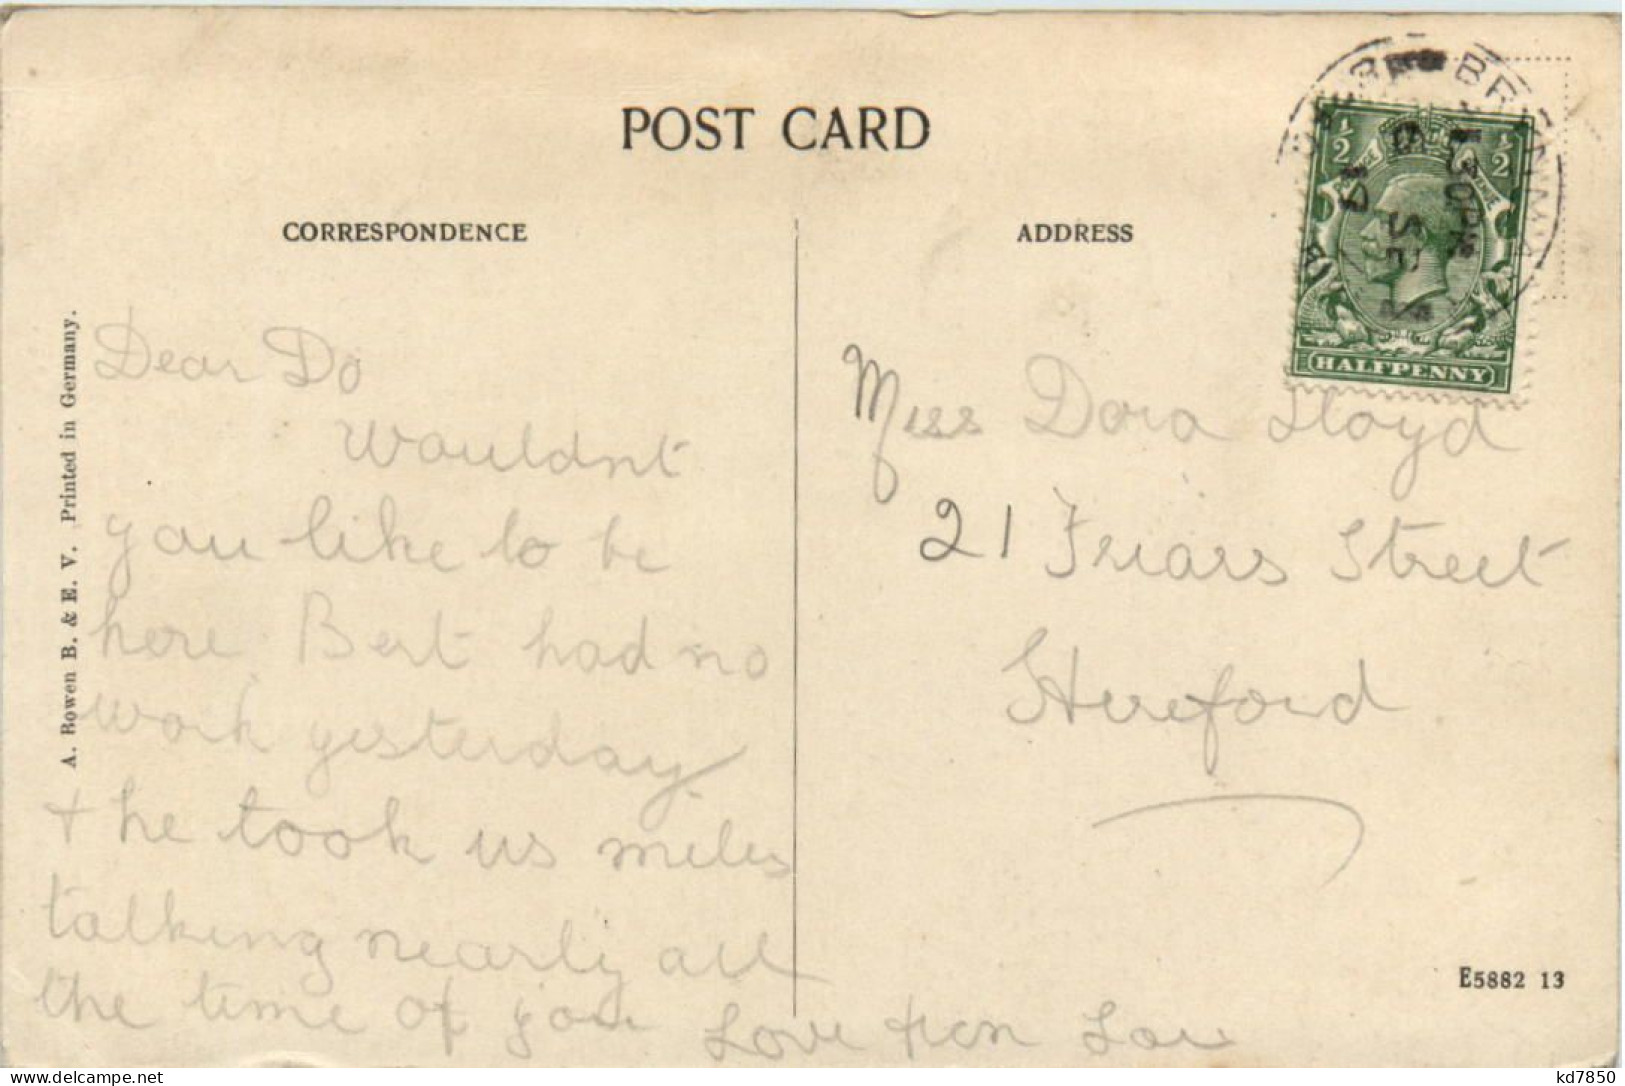 POST CARD
CORRESPONDENCE
ADDRESS
A. Bowen B. & E. V. Printed in Germany.
Dear Do
Wouldnt
you like to be
here Bert had no
work yesterday
+ he took us miles
talking nearly all
the time of you Love from Lou
Miss Dora Lloyd
21 Friars Street
Hereford
½ ½
HALFPENNY
1.30 PM
SE
E5882 13
kd7850